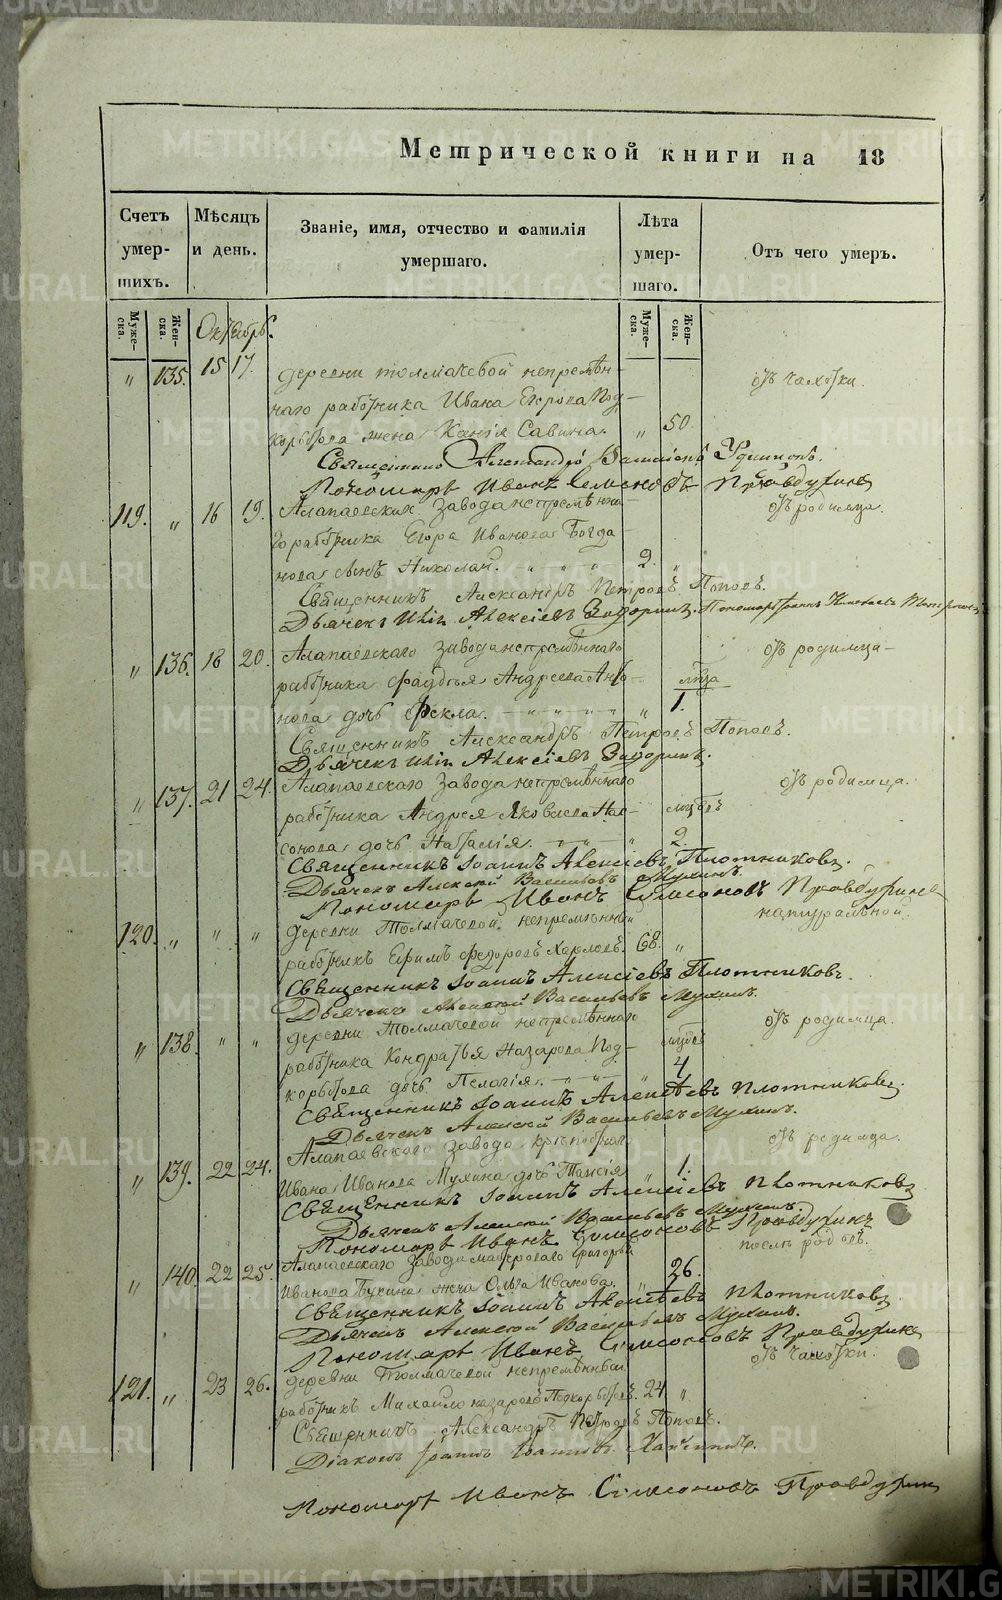 Метрической книги на 18
Счетъ умер- шихъ.
Мѣсяцъ и день.
Званіе, имя, отчество и фамилія умершаго.
Лѣта умер- шаго.
Отъ чего умеръ.
Муже- ска.
Жен- ска.
Муже- ска.
Жен- ска.
Октябрь.
" 135. 15 17. деревни толмачевой непремѣн- отъ чахотки.
наго работника Ивана Егорова Под-
корытова жена Савина. " 50.
Священникъ Александръ Удинцовъ.
Пономарь Иванъ Семеновъ Правдухинъ
119. " 16 19. Алапаевскаго завода непремѣнна- отъ родимца.
го работника Егора Иванова Богда-
нова сынъ Николай. 2. "
Священникъ Александръ Петровъ Поповъ.
Дьячекъ Илія Алексіевъ Задоринъ. Пономарь
" 136. 18 20. Алапаевскаго завода непремѣннаго отъ родимца
работника Фадѣя Андреева Анто- лѣта
нова дочь Фекла. " 1.
Священникъ Александръ Петровъ Поповъ.
Дьячекъ Илія Алексіевъ Задоринъ.
" 137. 21 24. Алапаевскаго завода непремѣннаго отъ родимца.
работника Андрея Яковлева Нас-
сонова дочь Наталія. " 2.
Священникъ Іоаннъ Алексіевъ Плотниковъ.
Дьячекъ Алексѣй Васильевъ Мухинъ.
Пономарь Иванъ Симеоновъ Правдухинъ
120. " " " деревни Толмачевой непремѣнный натуральной.
работникъ Ефимъ Федоровъ 68. "
Священникъ Іоаннъ Алексіевъ Плотниковъ.
Дьячекъ Алексѣй Васильевъ Мухинъ.
" 138. " " деревни Толмачевой непремѣннаго отъ родимца.
работника Кондратья Назарова Под-
корытова дочь Пелагія. " 4.
Священникъ Іоаннъ Алексѣевъ Плотниковъ.
Дьячекъ Алексѣй Васильевъ Мухинъ.
" 139. 22 24. Алапаевского завода отъ родимца.
Ивана Иванова Мухина дочь Таисія " 1.
Священникъ Іоаннъ Алексіевъ Плотниковъ
Дьячекъ Алексѣй Васильевъ Мухинъ.
Пономарь Иванъ Симеоновъ Правдухинъ
" 140. 22 25. Алапаевскаго завода мастероваго Григорья послѣ родовъ.
Иванова жена Ольга Иванова. " 26.
Священникъ Іоаннъ Алексѣевъ Плотниковъ
Дьячекъ Алексѣй Васильевъ Мухинъ.
Пономарь Иванъ Симеоновъ Правдухинъ
121. " 23 26. деревни Толмачевой непремѣнный отъ чахотки.
работникъ Михайло Назаровъ Подкорытовъ. 24 "
Священникъ Александръ Петровъ Поповъ.
Діаконъ Іоаннъ
Пономарь Иванъ Симеоновъ Правдухинъ
METRIKI.GASO-URAL.RU